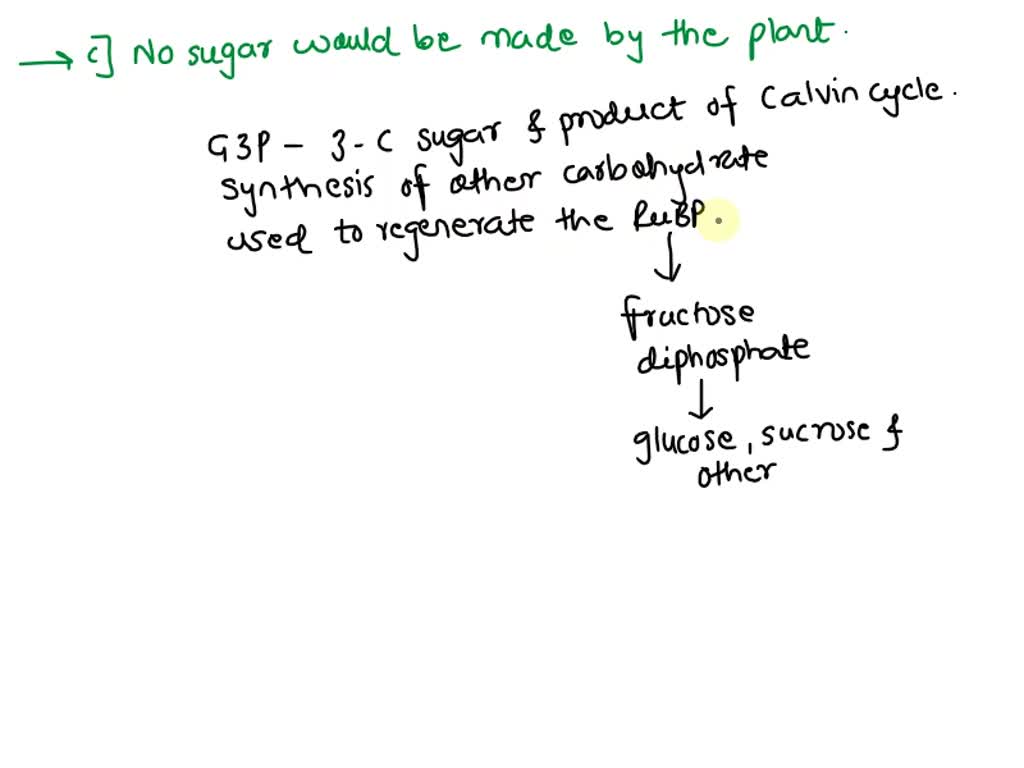 → c] No sugar would be made by the plant.
G3P - 3-C sugar & product of Calvin cycle.
synthesis of other carbohydrate
used to regenerate the RuBP.
↓
fructose
diphosphate
↓
glucose, sucrose &
other